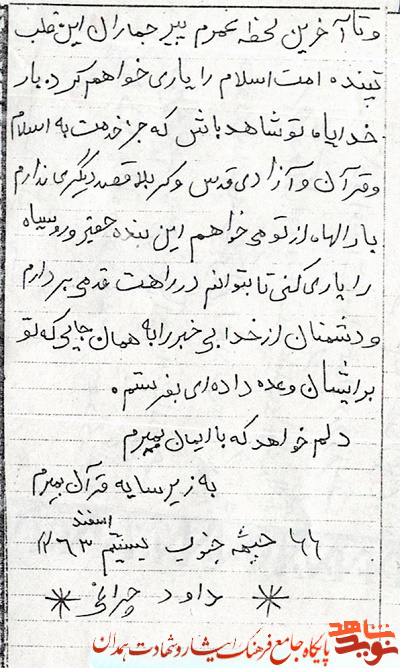 و تا آخرین لحظه عمرم پیر جماران این قلب
تپنده امت اسلام را یاری خواهم کرد. بار
خدایا، تو شاهد باش که جز خدمت به اسلام
و قرآن و آزادی قدس و کربلا قصد دیگری ندارم
بارالها، از تو می‌خواهم این بنده حقیر و روسیاه
را یاری کنی تا بتوانم در راهت قدمی بردارم
و دشمنان از خدا بی‌خبر را به همان جایی که تو
برایشان وعده داده‌ای بفرستم.
دلم خواهد که با ایمان بمیرم
به زیر سایه قرآن بمیرم
جبهه جنوب بیستم اسفند ۱۳۶۳
داود چراغی
شاهد
نوید
پایگاه جامع فرهنگ ایثار و شهادت همدان